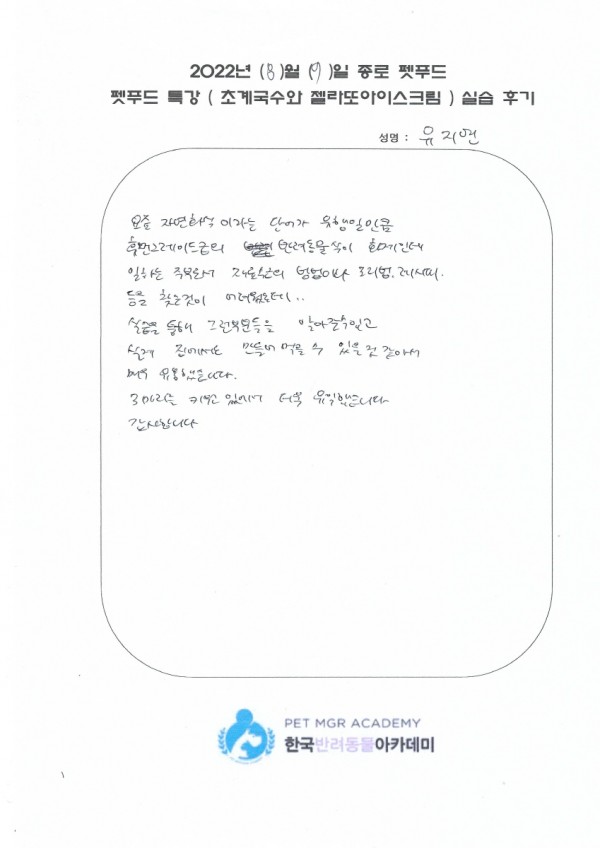 2022년 (8)월 (17)일 종로 펫푸드
펫푸드 특강 ( 초계국수와 젤라또아이스크림 ) 실습 후기
성명 : 유지연
요즘 자연화식 이라는 단어가 유행일만큼
휴먼그레이드급의 반려동물식이 화제인데
일하는 주부로서 방법이나 조리법, 레시피.
등을 찾는것이 어려웠는데..
실습을 통해 그런부분들을 알아갈수있고
실제 집에서도 만들어 먹일 수 있을것 같아서
매우 유용했습니다.
3마리를 키우고 있어서 더욱 유익했습니다
감사합니다
PET MGR ACADEMY
한국반려동물아카데미